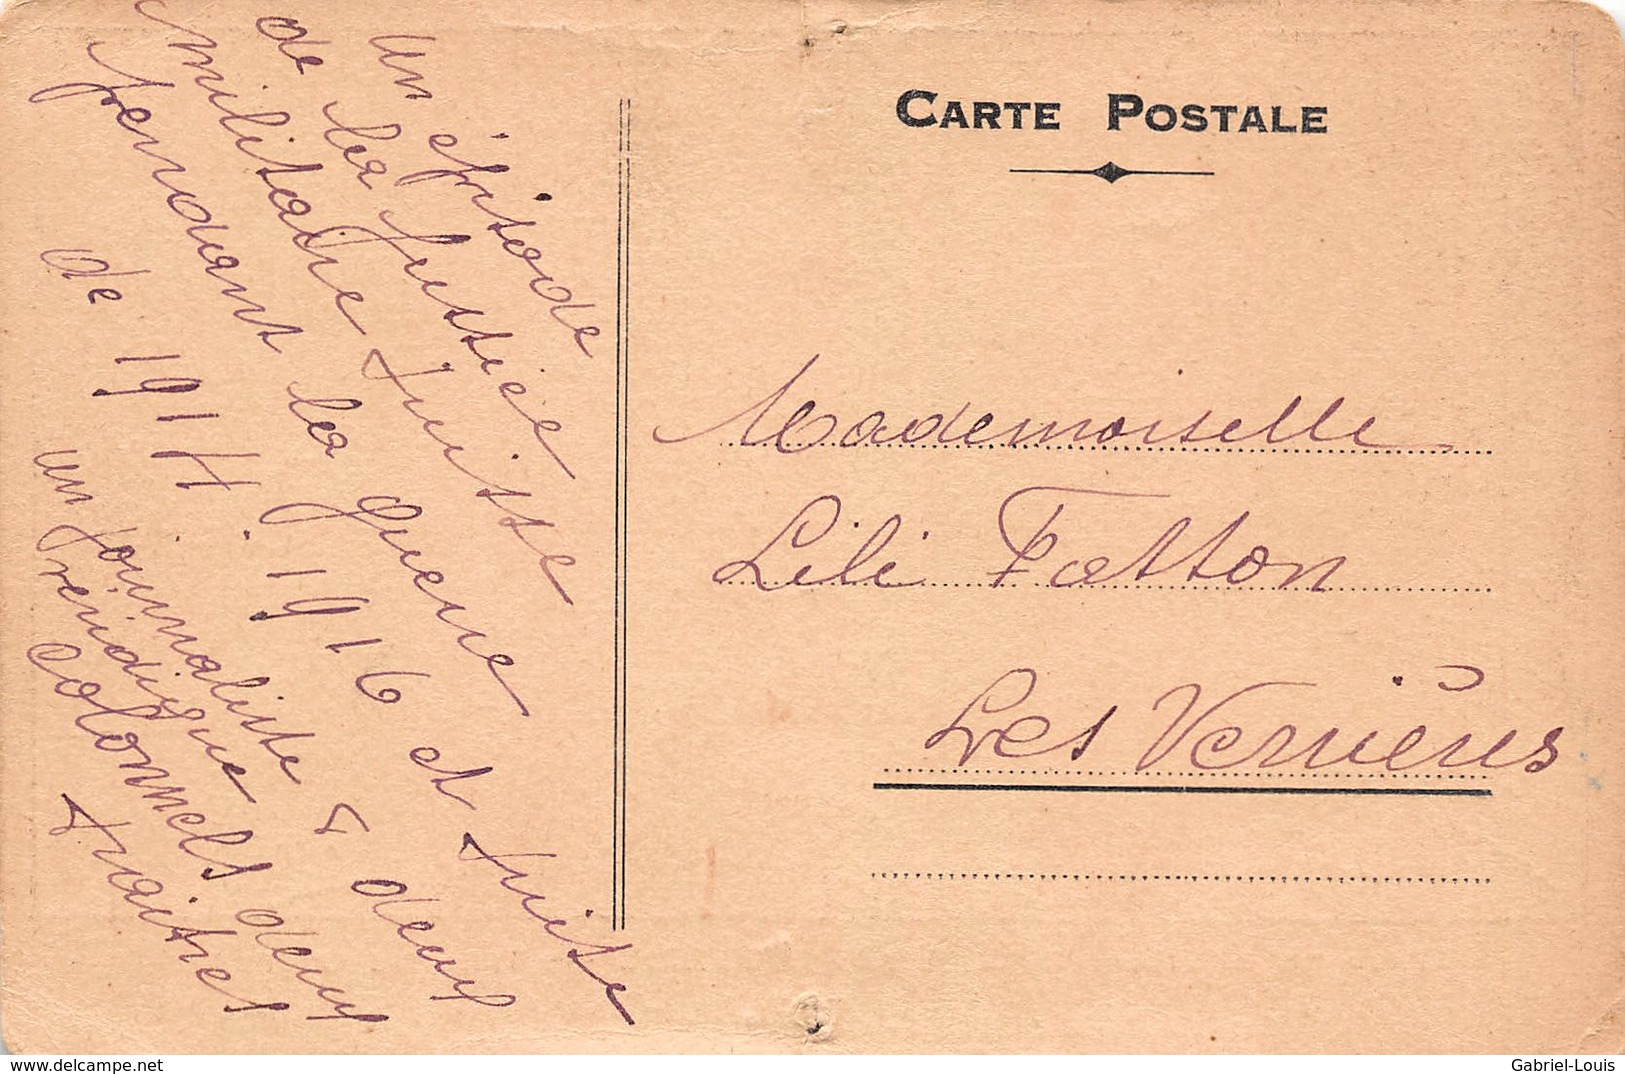 un épisode
de la justice
militaire suisse
pendant la guerre
de 1914. 1916 et suite
un journaliste & deux
véridique
colonnels deux
traitres
CARTE POSTALE
Mademoiselle
Lili Fatton
Les Verrières
www.delcampe.net
Gabriel-Louis